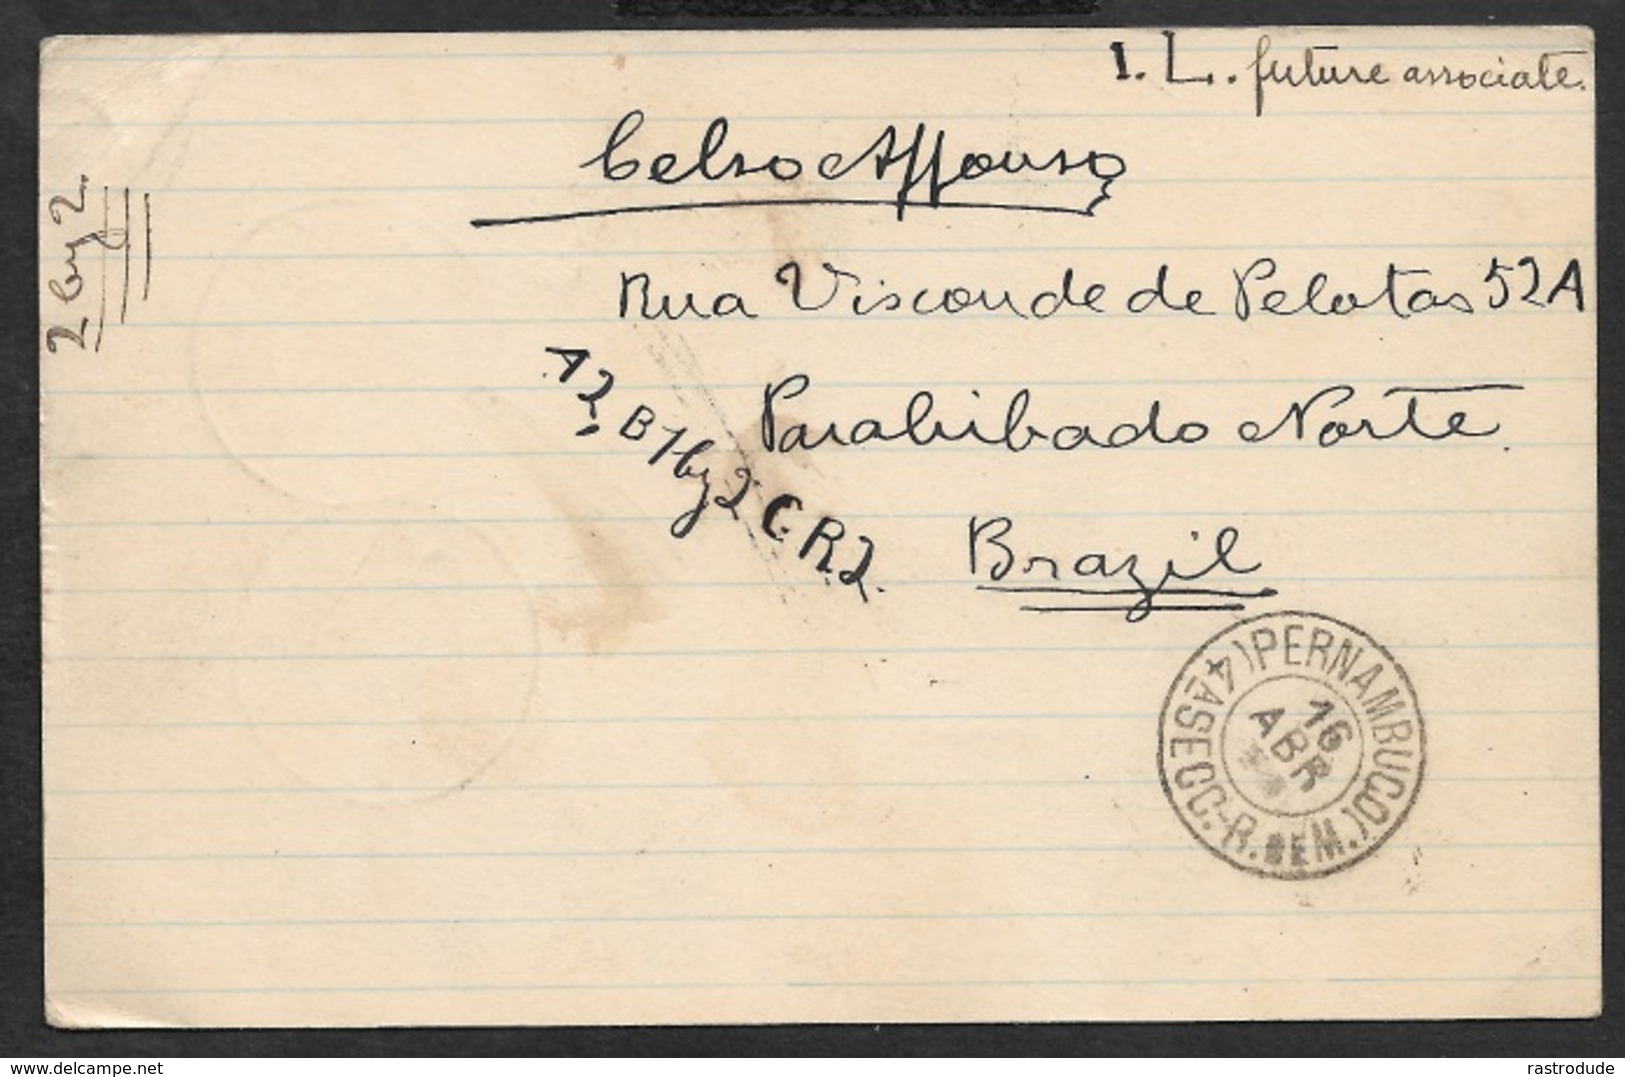 I. L. future associate.
Celso Affonso
Rua Visconde de Pelotas 52A
Parahiba do Norte
Brazil
2 by 2
A2, B 1 by 2 C R2.
PERNAMBUCO
(4ASECC.-R. EM.)
16
ABR
www.delcampe.net
rastrodude